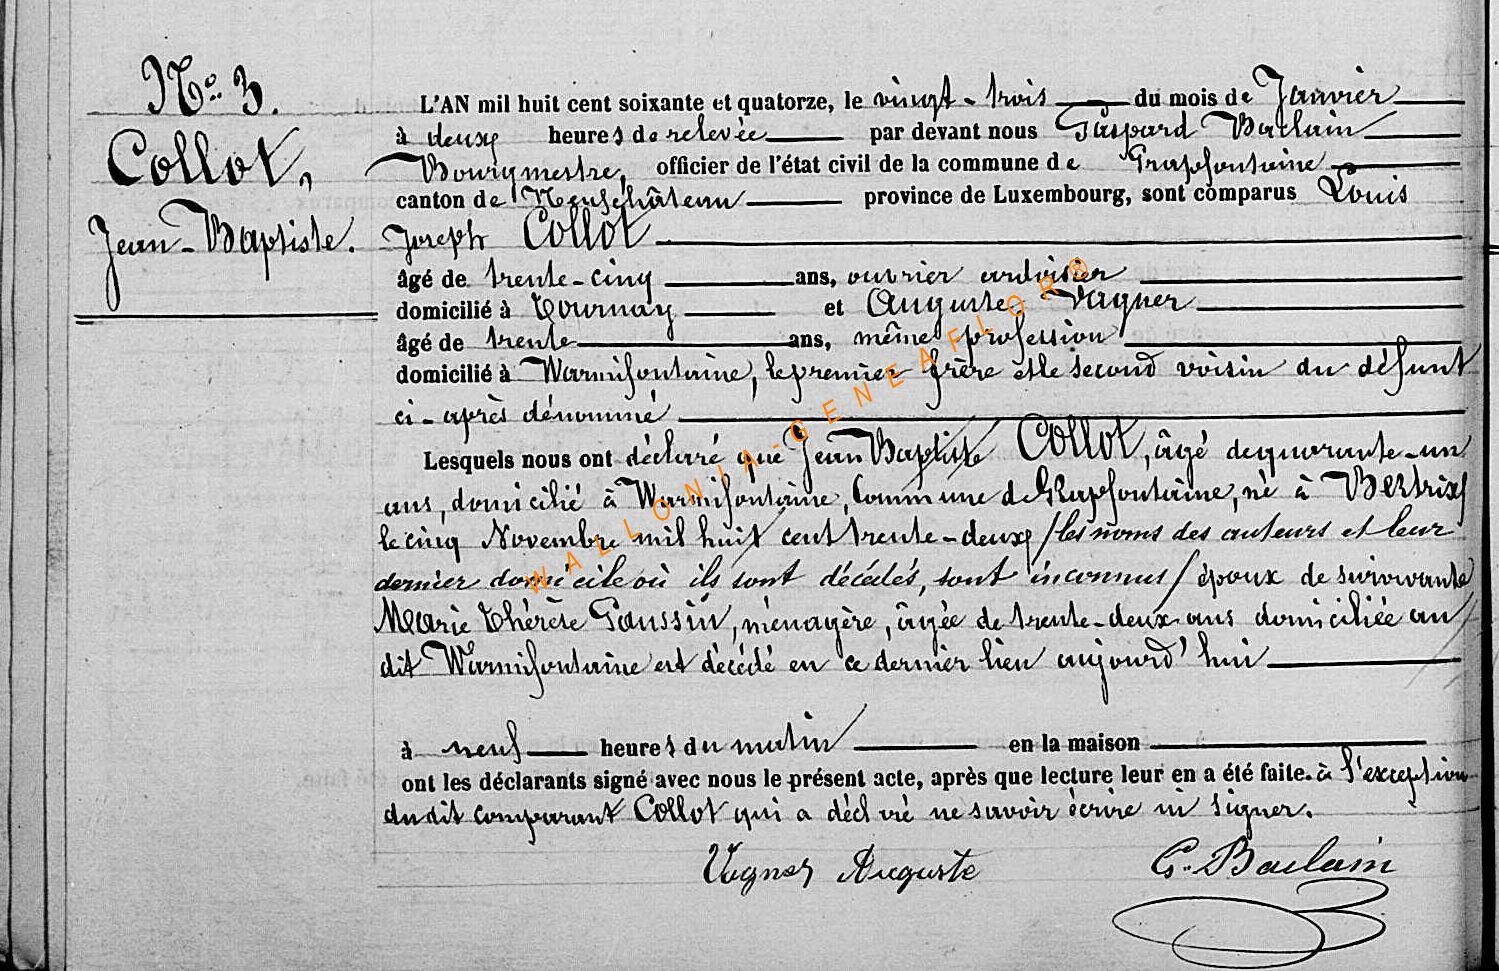 No. 3.
Collot,
Jean-Baptiste.
L'AN mil huit cent soixante et quatorze, le vingt-trois du mois de Janvier
à deux heures de relevée par devant nous Gaspard Baclain
Bourgmestre, officier de l'état civil de la commune de Grapfontaine
canton de Neufchâteau province de Luxembourg, sont comparus Louis
Joseph Collot
âgé de trente-cinq ans, ouvrier ardoisier
domicilié à Tournay et Auguste Vagner
âgé de trente ans, même profession
domicilié à Warmifontaine, le premier frère et le second voisin du défunt
ci-après dénommé
Lesquels nous ont déclaré que Jean Baptiste Collot, âgé de quarante-un
ans, domicilié à Warmifontaine, Commune de Grapfontaine, né à Bertrix
le cinq Novembre mil huit cent trente-deux / les noms des auteurs et leur
dernier domicile où ils sont décédés, sont inconnus / époux de survivante
Marie Thérèse Goussin, ménagère, âgée de trente-deux ans domiciliée au
dit Warmifontaine est décédé en ce dernier lieu aujourd'hui
à neuf heures du matin en la maison
ont les déclarants signé avec nous le présent acte, après que lecture leur en a été faite. à l'exception
du dit comparant Collot qui a déclaré ne savoir écrire ni signer.
Vagner Auguste G. Baclain
WALLONIA-GENEAFLOR®